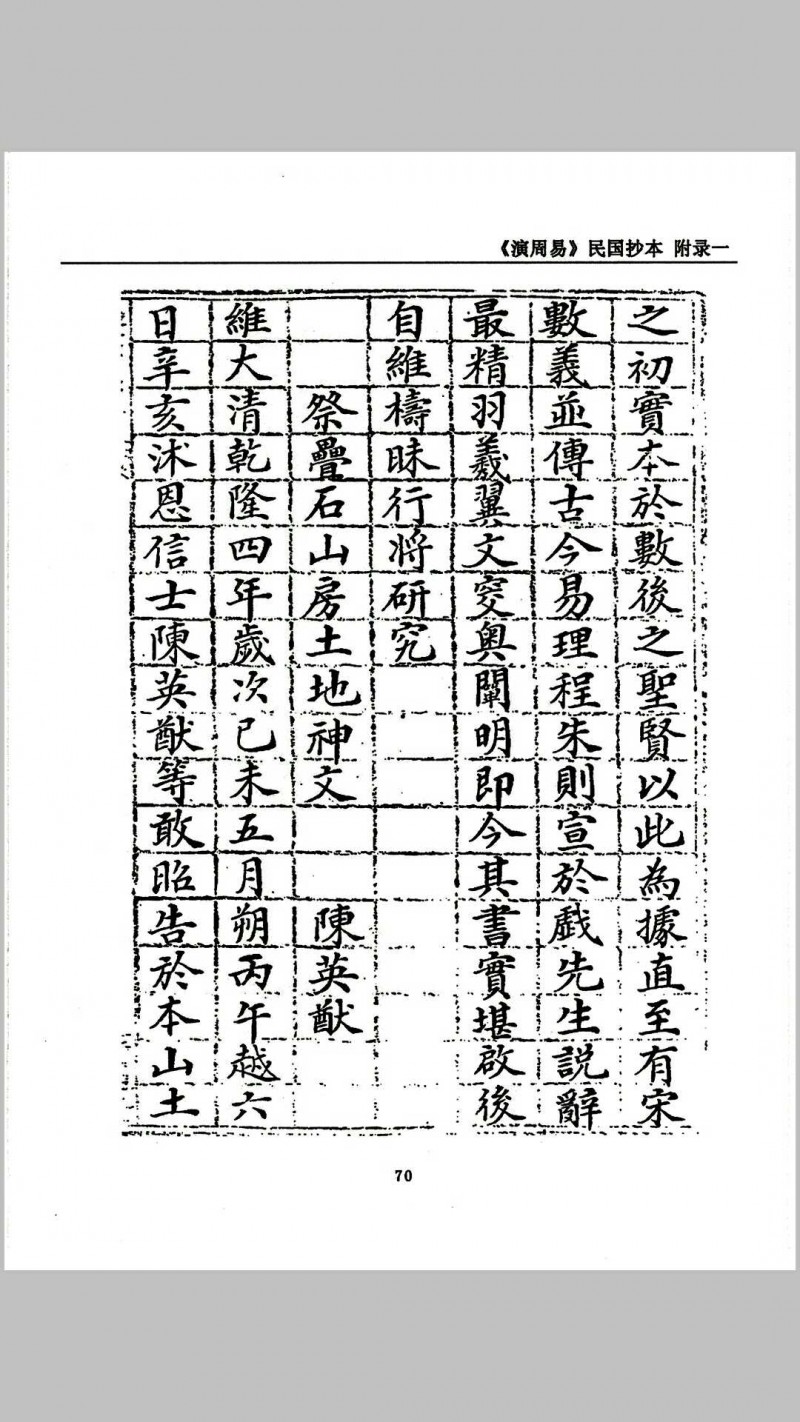 《演周易》民国抄本 附录一
之初實本於數後之聖賢以此為據直至有宋
數義並傳古今易理程朱則宣於戲先生說辭
最精羽羲翼文窔奥闡明即今其書實堪啟後
自維檮昧行將研究
祭疊石山房土地神文 陳英猷
維大清乾隆四年歲次己未五月朔丙午越六
日辛亥沐恩信士陳英猷等敢昭告於本山土
70